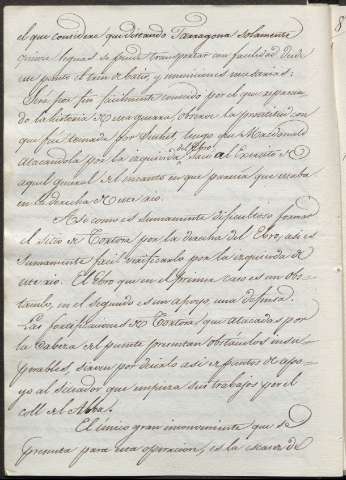 el que considere que distando Tarragona solamente
quince leguas se puede transportar con facilidad desde
ese punto el tren de batir, y municiones necesarias:
Será por fin facilmente conocido por el que repasan-
do la historia de esta guerra, observe la prontitud con
que fué tomada por Suchet, luego que Macdonald
atacandola por la izquierda del Ebro, sacó al Exercito de
aquel general del encanto en que parecia que estaba
en la derecha de este rio.
Asi como es sumamente dificultoso formar
el sitio de Tortosa por la derecha del Ebro, asi es
sumamente facil verificarlo por la izquierda de
este rio. El Ebro que en el primer caso es un obs-
taculo, en el segundo es un apoyo, una defensa.
Las fortificaciones de Tortosa que atacadas por
la Cabeza del puente presentan obstaculos insu-
perables, sirven por decirlo asi de puntos de apo-
yo al sitiador que empieza sus trabajos por el
coll del Alba.
El unico gran inconveniente que se
presenta para esta operacion, es la escasez de
8